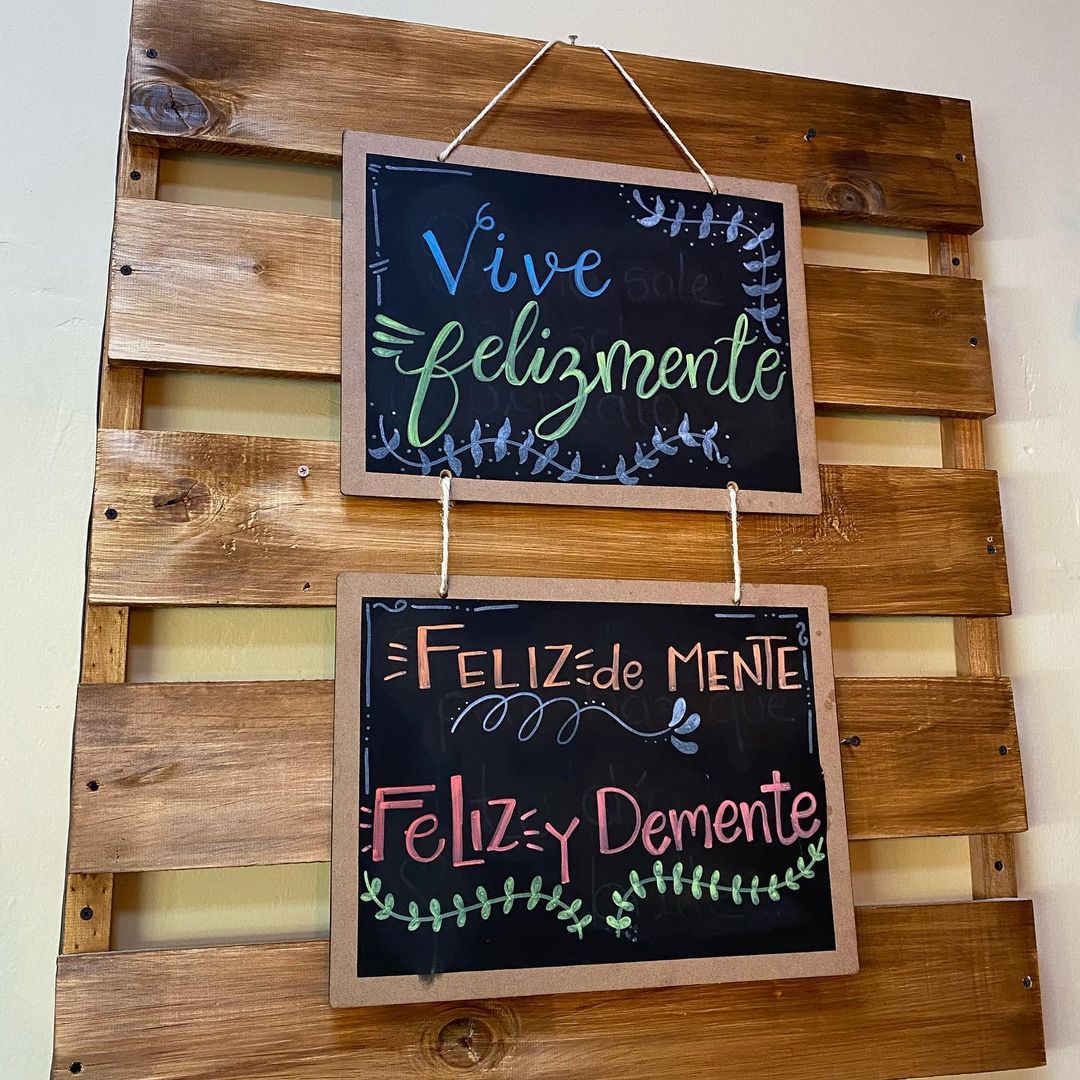 Vive
felizmente
FELIZ de MENTE
FeLIZ y Demente